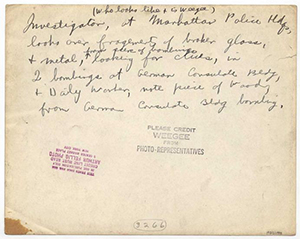 (who looks like Weegee)
Investigator, at Manhattan Police Hdqs,
looks over fragments of broken glass,
from piece of bombings
& metal, looking for clues, in
2 bombings at German Consulate Bldg,
& Daily Worker, note piece of wood
from German Consulate Bldg bombing.
PLEASE CREDIT
WEEGEE
FROM
PHOTO-REPRESENTATIVES
ARTHUR FELLIG
3266